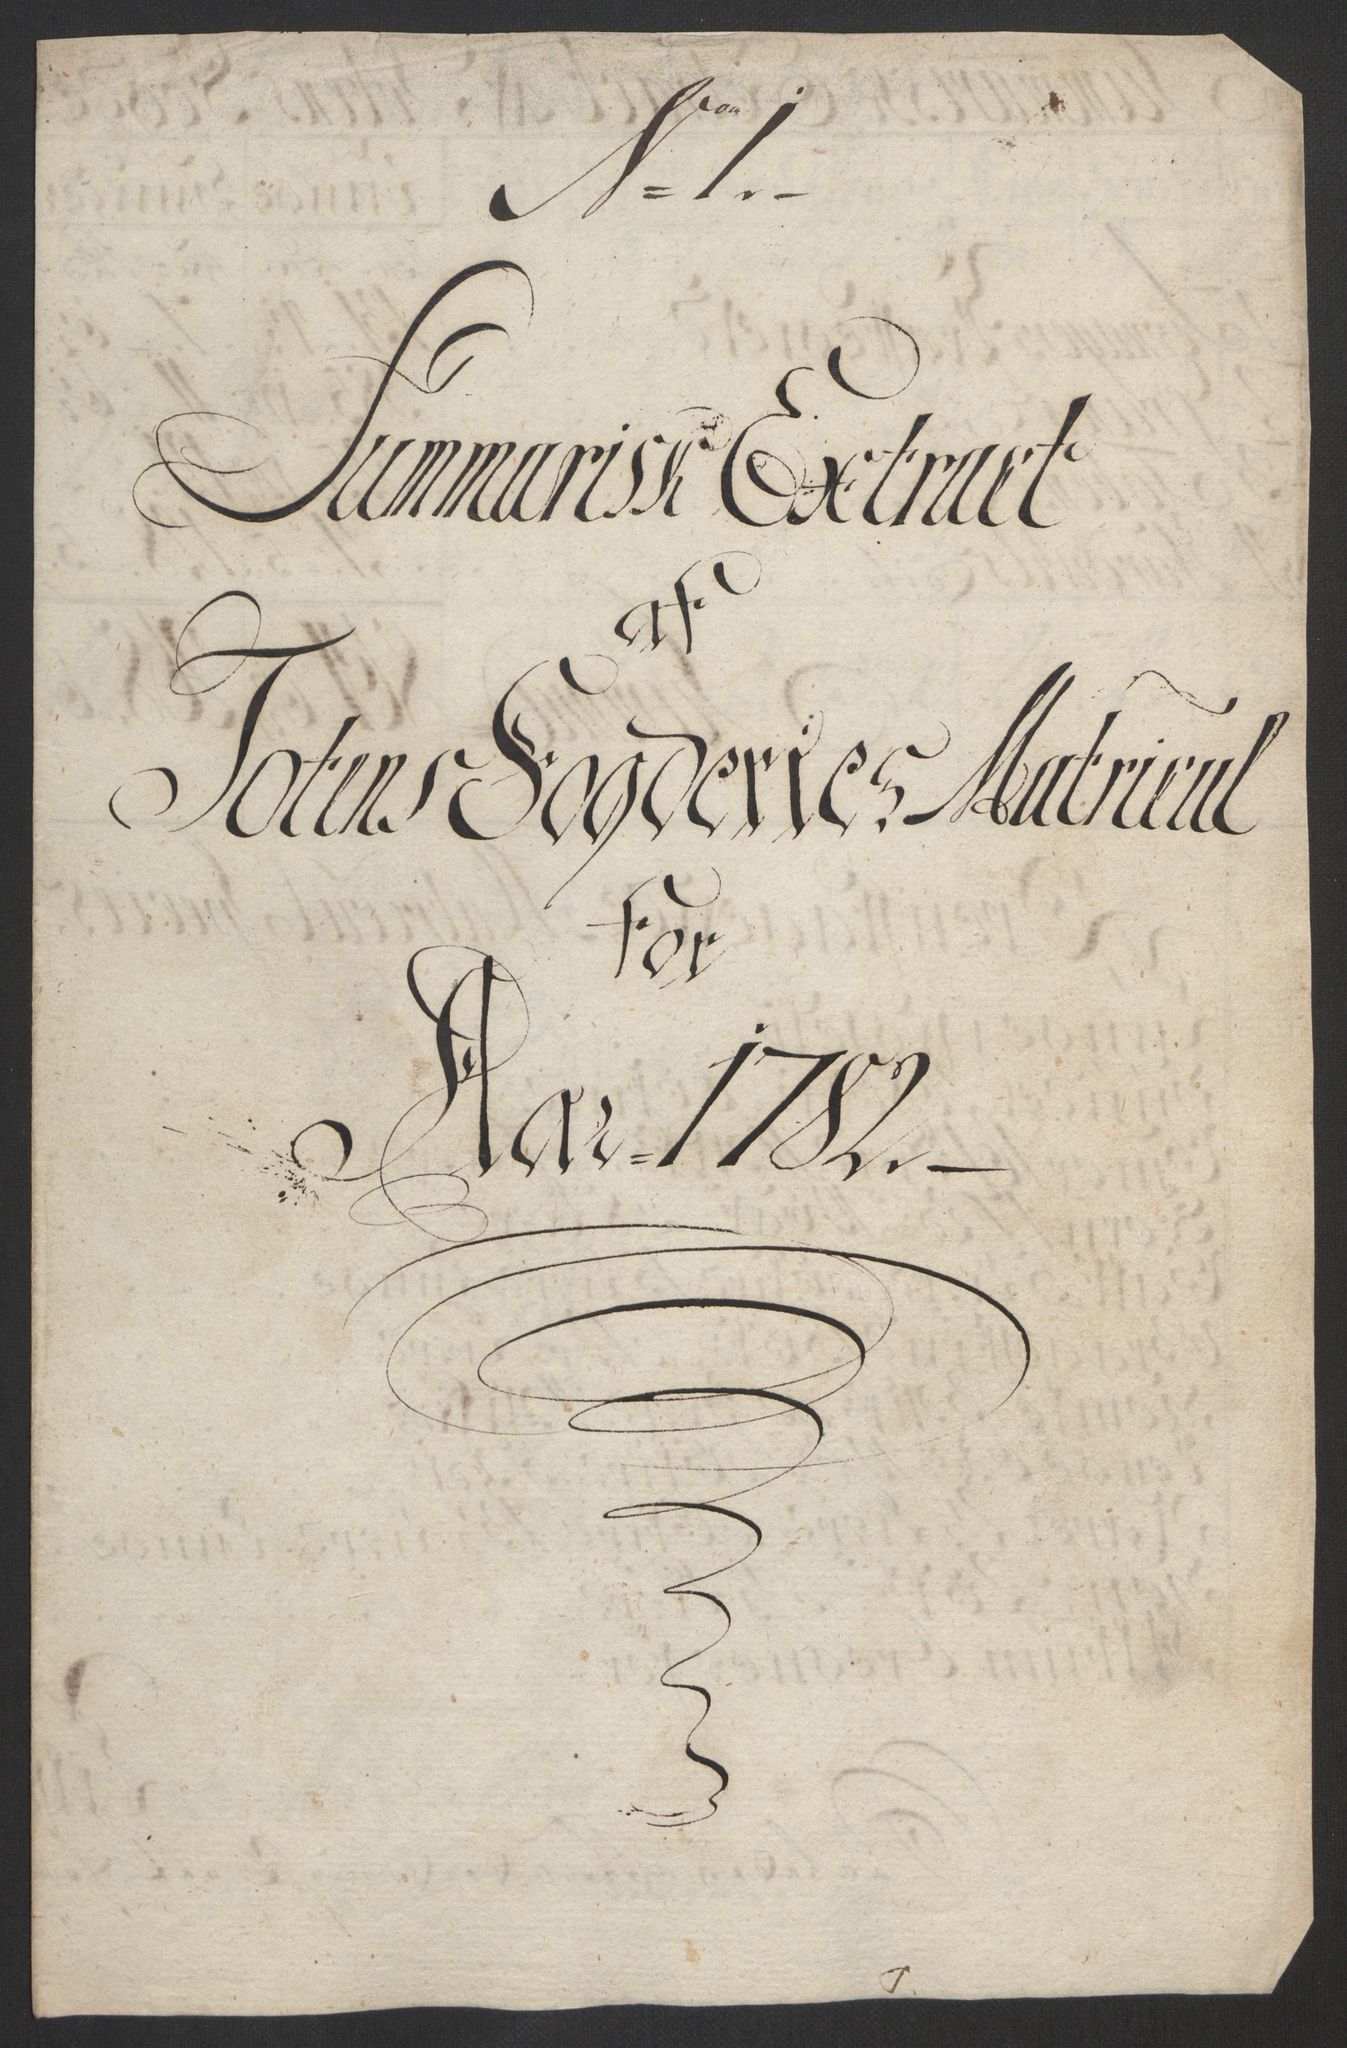 No = 1.
Summarisk Extract
af
Totens Fogderies Matricul
for
Aar = 1782. —